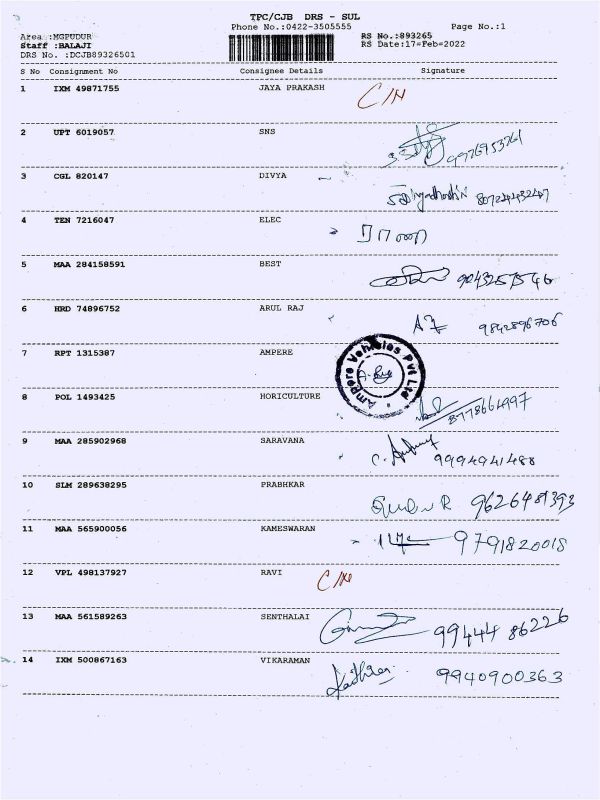 TPC/CJB DRS - SUL
Phone No.:0422-3505555 Page No.:1
Area :MGPUDUR RS No.:893265
Staff :BALAJI RS Date:17=Feb=2022
DRS No. :DCJB89326501
S No Consignment No Consignee Details Signature
1 IXM 49871755 JAYA PRAKASH
2 UPT 6019057 SNS
3 CGL 820147 DIVYA
4 TEN 7216047 ELEC
5 MAA 284158591 BEST 9043257546
6 HRD 74896752 ARUL RAJ 9842896706
7 RPT 1315387 AMPERE
Ampere Vehicles Pvt Ltd
8 POL 1493425 HORICULTURE 8778664997
9 MAA 285902968 SARAVANA 9994941488
10 SLM 289638295 PRABHKAR 9626481393
11 MAA 565900056 KAMESWARAN 9791820018
12 VPL 498137927 RAVI
13 MAA 561589263 SENTHALAI 99444 86226
14 IXM 500867163 VIKARAMAN 9940900363